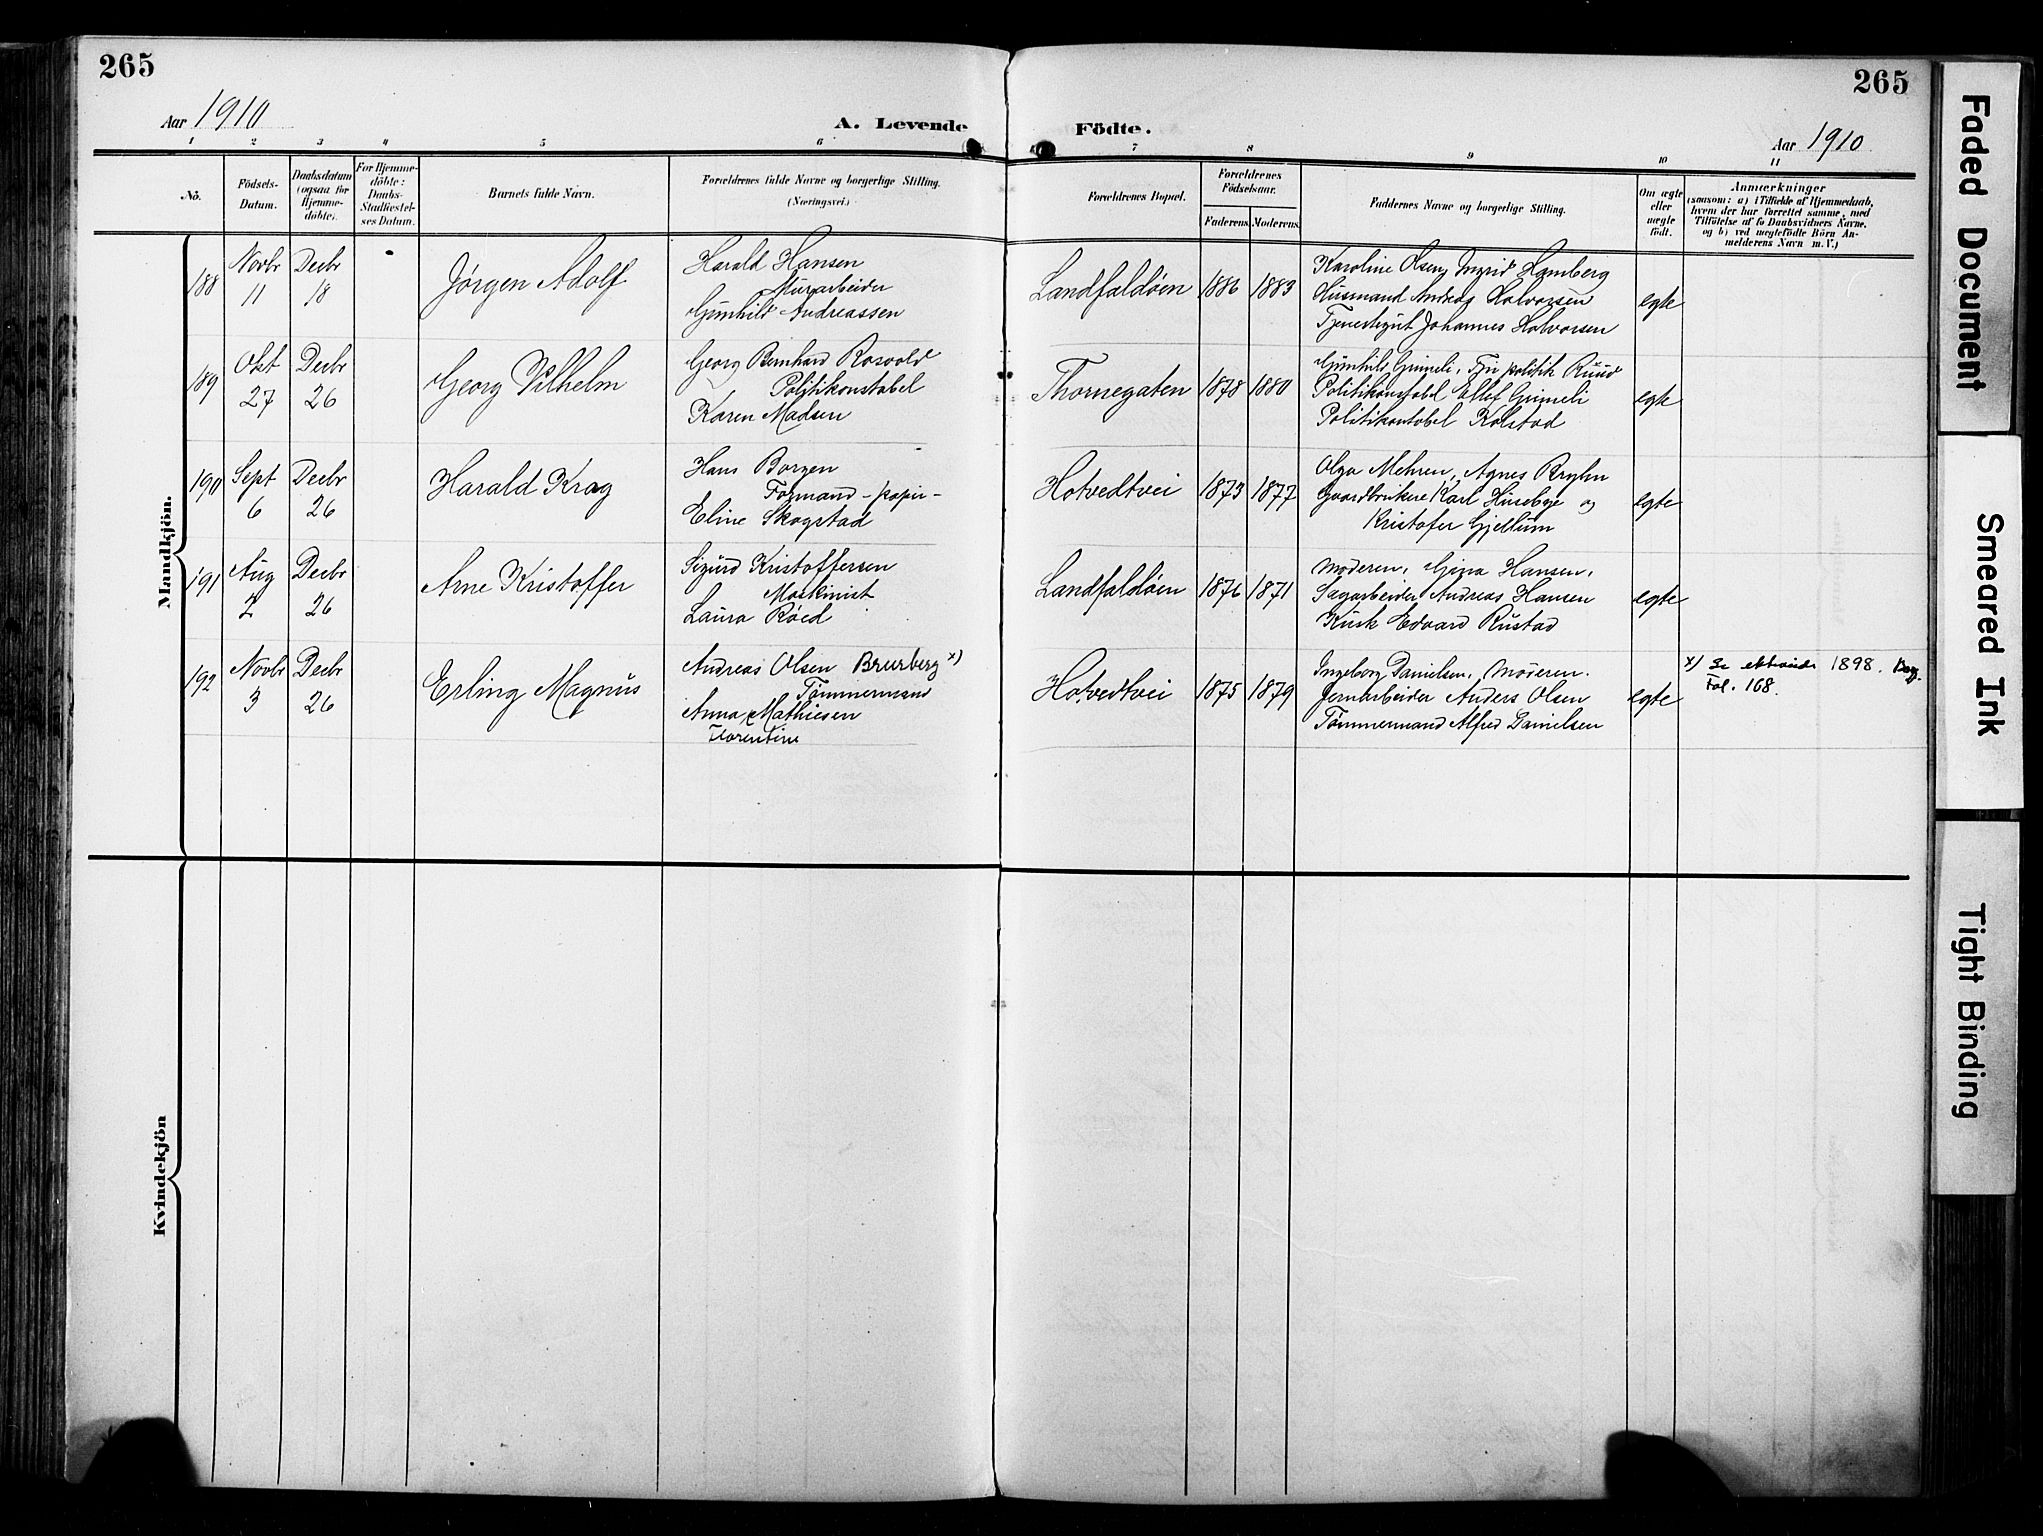 265
265
Aar 1910
A. Levende Födte.
Aar 1910
1 2 3 4 5 6 7 8 9 10 11
No.
Födsels-
Datum.
Daabsdatum
(ogsaa for
Hjemme-
döbte).
For Hjemme-
döbte:
Daabs-
Stadfæstel-
ses Datum.
Barnets fulde Navn.
Forældrenes fulde Navne og borgerlige Stilling.
(Næringsvei.)
Forældrenes Bopæl.
Forældrenes
Födselsaar.
Faderens Moderens
Faddernes Navne og borgerlige Stilling.
Om ægte
eller
uægte
födt.
Anmærkninger
(saasom: a) i Tilfælde af Hjemmedaab,
hvem der har forrettet samme, med
Tilföielse af to Daabsvidners Navne,
og b) ved uægtefödte Börn An-
melderens Navn m. V.)
Mandkjön.
188
Novbr
11
Decbr
18
Jørgen Adolf
Harald Hansen
Murarbeider
Gunhild Andreassen
Landfaldøen
1886 1883
Karoline Olsen, Ingrid Hamberg
Husmand Andreas Halvorsen
Tjenestegut Johannes Halvorsen
egte
189
Okt
27
Decbr
26
Georg Vilhelm
Georg Bernhard Rosvold
Politikonstabel
Karen Madsen
Thornegaten
1878 1880
Gunhild Grimeli, Fru politik Ruud
Politikonstabel Ellef Grimeli
Politikonstabel Kolstad
egte
190
Sept
6
Decbr
26
Harald Krag
Hans Borgen
Formand - papir -
Eline Skogstad
Hotvedtvei
1873 1877
Olga Mehren, Agnes Bryhn
Gaardbrukere Karl Husebye og
Kristofer Gjellum
egte
191
Aug
2
Decbr
26
Arne Kristoffer
Sigurd Kristoffersen
Maskinist
Laura Röed
Landfaldøen
1876 1871
Moderen, Gina Hansen,
Sagarbeider Andreas Hansen
Kusk Edvard Rustad
egte
192
Novbr
3
Decbr
26
Erling Magnus
Andreas Olsen Brurberg x)
Tømmermand
Anna Mathiesen
Florentine
Hotvedtvei
1875 1879
Ingeborg Danielsen, Moderen.
Jernarbeider Anders Olsen
Tømmermand Alfred Danielsen
egte
x) Se ektevide 1898.
Fol. 168.
Kvindekjön
Faded Document
Smeared Ink
Tight Binding